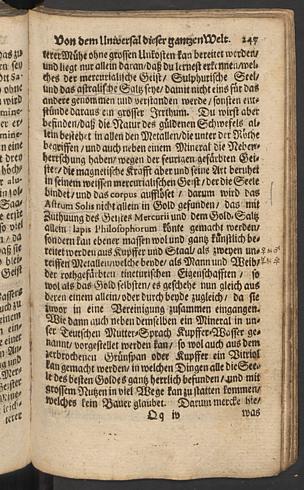 Von dem Universal dieser gantzen Welt. 245
terer Mühe ohne grossen Unkosten kan bereitet werden/
und liegt nur allein daran/ daß du lernest erkennen/ wel-
ches der mercurialische Geist/ Sulphurische Seel/
und das astralische Saltz seye/ damit nicht eins für das
andere genommen und verstanden werde/ sonsten ent-
stünde daraus ein grosser Irrthum. Du wirst aber
befinden/ daß die Natur des güldenen Schwefels al-
lein bestehet in allen den Metallen/ die unter der Röthe
begriffen/ und auch neben einem Mineral die Neben-
herrschung haben/ wegen der feurigen gefärbten Gei-
ster/ die magnetische Krafft aber und seine Art beruhet
in seinem weissen mercurialischen Geist/ der die Seele
bindet/ und das corpus auffläset/ darum wird das
Astrum Solis nicht allein in Gold gefunden/ das mit
Zuthuung des Geistes Mercurii und dem Gold-Saltz
allein lapis Philosophorum könte gemacht werden/
sondern kan ebener massen wol und gantz künstlich be-
reitet werden aus Kupffer und Staal/ als zweyen un-
reiffen Metallen/ welche beyde/ als Mann und Weib/
der rothgefärbten tincturischen Eigenschafften/ so
wol als das Gold selbsten/ es geschehe nun gleich aus
deren einem allein/ oder durch beyde zugleich/ da sie
zuvor in eine Vereinigung zusammen eingangen.
Wie dann auch neben denselben ein Mineral in un-
ser Teutschen Mutter-Sprach Kupffer-Wasser ge-
nannt/ vorgestellet werden kan/ so wol auch aus dem
zerbrochenen Grünspan oder Kupffer ein Vitriol
kan gemacht werden/ in welchen Dingen alle die See-
le des besten Goldes gantz herrlich befunden/ und mit
grossem Nutzen in viel Wege kan zu statten kommen/
welches kein Bauer glaubet. Darum mercke hie/
Qq iv was